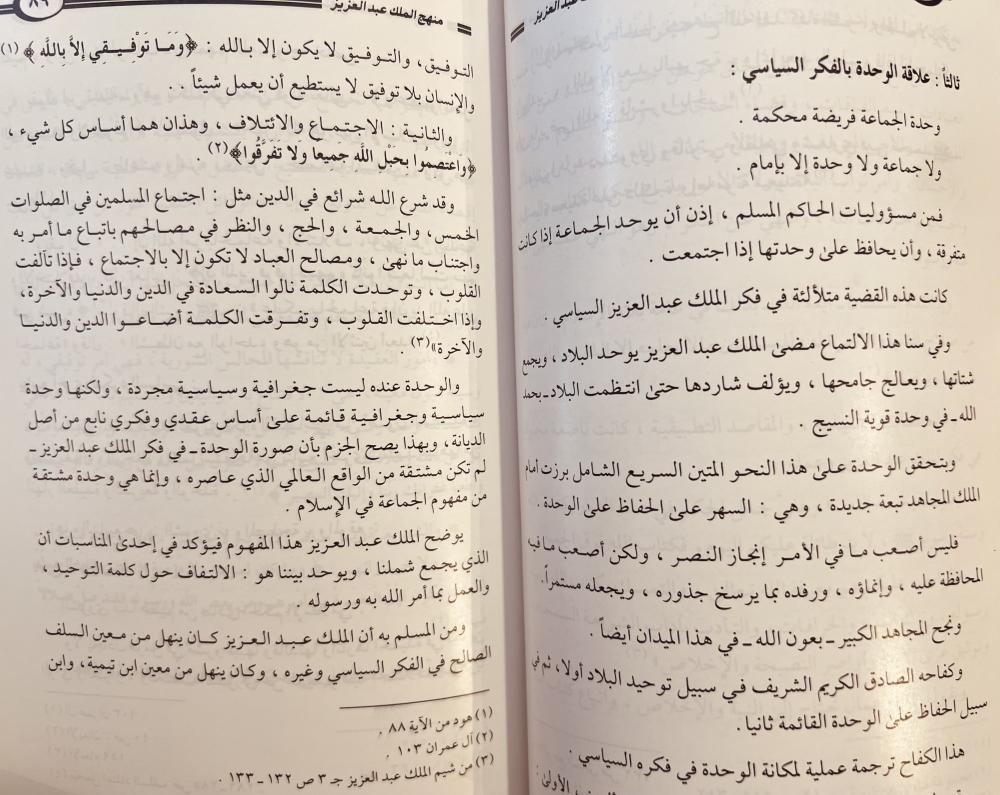 عبد العزيز
ثالثاً : علاقة الوحدة بالفكر السياسي :
وحدة الجماعة فريضة محكمة .
ولا جماعة ولا وحدة إلا بإمام .
فمن مسؤوليات الحاكم المسلم ، إذن أن يوحد الجماعة إذا كانت
متفرقة ، وأن يحافظ علىٰ وحدتها إذا اجتمعت .
كانت هذه القضية متلألئة في فكر الملك عبد العزيز السياسي .
وفي سنا هذا الالتماع مضىٰ الملك عبد العزيز يوحد البلاد ، ويجمع
شتاتها ، ويعالج جامحها ، ويؤلف شاردها حتىٰ انتظمت البلاد ـ بحمد
الله ـ في وحدة قوية النسيج .
وبتحقق الوحدة علىٰ هذا النحو المتين السريع الشامل برزت أمام
الملك المجاهد تبعة جديدة ، وهي : السهر علىٰ الحفاظ علىٰ الوحدة .
فليس أصعب ما في الأمر إنجاز النصر ، ولكن أصعب ما فيه
المحافظة عليه ، وإنماؤه ، ورفده بما يرسخ جذوره ، ويجعله مستمراً.
ونجح المجاهد الكبير ـ بعون الله ـ في هذا الميدان أيضاً .
وكفاحه الصادق الكريم الشريف في سبيل توحيد البلاد أولا ، ثم في
سبيل الحفاظ علىٰ الوحدة القائمة ثانيا .
هذا الكفاح ترجمة عملية لمكانة الوحدة في فكره السياسي .
الأولىٰ :
منهج الملك عبد العزيز
٨٩
التوفيق، والتوفيق لا يكون إلا بالله : ﴿وَمَا تَوْفِيقِي إِلاَّ بِاللَّه ﴾ (١)
والإنسان بلا توفيق لا يستطيع أن يعمل شيئاً . .
والثانية : الاجتماع والائتلاف ، وهذان هما أساس كل شيء ،
﴿واعتصمُوا بحَبْل اللَّه جميعا ولا تَفَرَّقُوا﴾(٢) .
وقد شرع الله شرائع في الدين مثل : اجتماع المسلمين في الصلوات
الخمس، والجمعة ، والحج ، والنظر في مصالحهم باتباع ما أمر به
واجتناب ما نهىٰ ، ومصالح العباد لا تكون إلا بالاجتماع ، فإذا تآلفت
القلوب ، وتوحدت الكلمة نالوا السعادة في الدين والدنيا والآخرة،
وإذا اختلفت القلوب ، وتفرقت الكلمة أضاعوا الدين والدنيا
والآخرة»(٣) .
والوحدة عنده ليست جغرافية وسياسية مجردة ، ولكنها وحدة
سياسية وجغرافية قائمة علىٰ أساس عقدي وفكري نابع من أصل
الديانة ، وبهذا يصح الجزم بأن صورة الوحدة ـ في فكر الملك عبد العزيز ـ
لم تكن مشتقة من الواقع العالمي الذي عاصره ، وإنما هي وحدة مشتقة
من مفهوم الجماعة في الإسلام .
يوضح الملك عبد العزيز هذا المفهوم فيؤكد في إحدىٰ المناسبات أن
الذي يجمع شملنا ، ويوحد بيننا هو : الالتفاف حول كلمة التوحيد ،
والعمل بما أمر الله به ورسوله .
ومن المسلم به أن الملك عبد العزيز كان ينهل من معين السلف
الصالح في الفكر السياسي وغيره ، وكان ينهل من معين ابن تيمية، وابن
(١) هود من الآية ٨٨ .
(٢) آل عمران ١٠٣ .
(٣) من شيم الملك عبد العزيز جـ ٣ ص ١٣٢ ـ ١٣٣ .